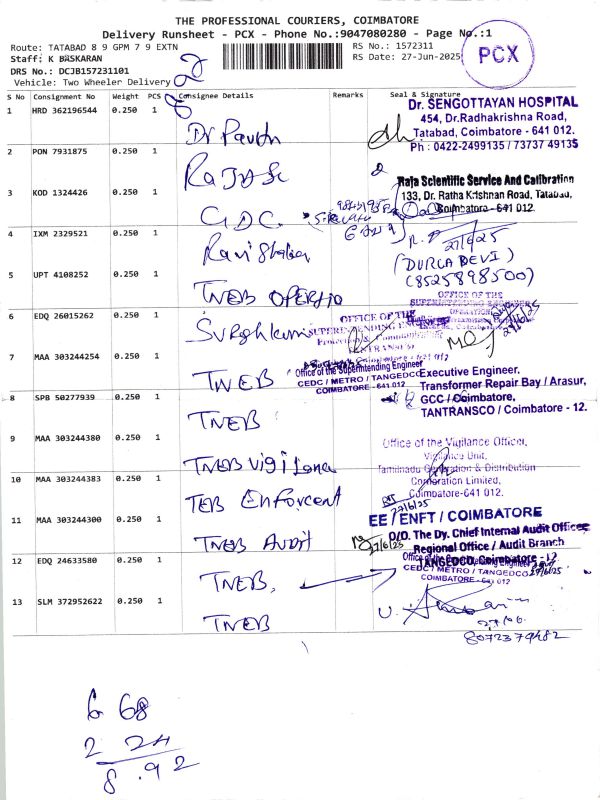 THE PROFESSIONAL COURIERS, COIMBATORE
Delivery Runsheet - PCX - Phone No.:9047080280 - Page No.:1
Route: TATABAD 8 9 GPM 7 9 EXTN
RS No.: 1572311
PCX
Staff: K BASKARAN
RS Date: 27-Jun-2025
DRS No.: DCJB157231101
Vehicle: Two Wheeler Delivery
S No Consignment No Weight PCS Consignee Details Remarks Seal & Signature
1 HRD 362196544 0.250 1
Dr. SENGOTTAYAN HOSPITAL
454, Dr.Radhakrishna Road,
Tatabad, Coimbatore - 641 012.
Ph : 0422-2499135 / 73737 49135
2 PON 7931875 0.250 1
Raja Scientific Service And Calibration
133, Dr. Ratha Krishnan Road, Tatabad,
Coimbatore - 641 012.
3 KOD 1324426 0.250 1 GDC
4 IXM 2329521 0.250 1
27/6/25
(DURGA DEVI)
(8525898500)
5 UPT 4108252 0.250 1 TNEB
OFFICE OF THE
SUPERINTENDING ENGINEER
6 EDQ 26015262 0.250 1
OFFICE OF THE
SUPERINTENDING ENGINEER
7 MAA 303244254 0.250 1 TNEB
Office of the Superintending Engineer
CEDC / METRO / TANGEDCO
COIMBATORE - 641 012
Executive Engineer,
Transformer Repair Bay / Arasur,
GCC / Coimbatore,
TANTRANSCO / Coimbatore - 12.
8 SPB 50277939 0.250 1 TNEB
9 MAA 303244380 0.250 1 TNEB Vigilance
Office of the Vigilance Officer,
Vigilance Unit,
Tamilnadu Generation & Distribution
Corporation Limited,
Coimbatore-641 012.
10 MAA 303244383 0.250 1 TEB Enforcent
27/6/25
EE / ENFT / COIMBATORE
11 MAA 303244300 0.250 1 TNEB Audit
27/6/25
O/O. The Dy. Chief Internal Audit Officer
Regional Office / Audit Branch
TANGEDCO, Coimbatore - 12
12 EDQ 24633580 0.250 1 TNEB,
Office of the Superintending Engineer
CEDC / METRO / TANGEDCO
COIMBATORE - 641 012
13 SLM 372952622 0.250 1 TNEB
27/06
8072379482
6 68
2 24
8.92